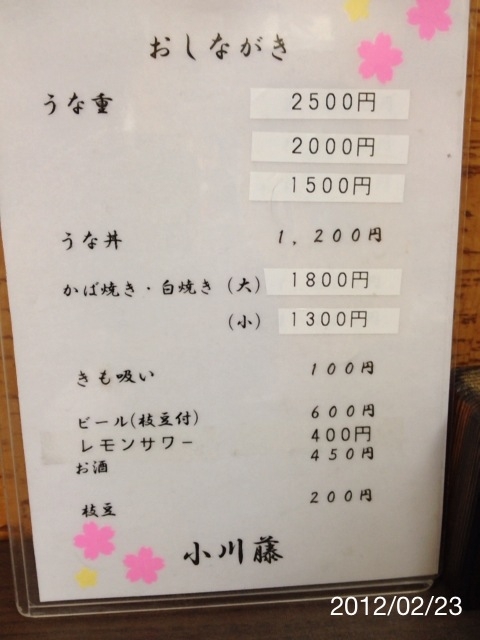 おしながき
うな重 2500円
2000円
1500円
うな丼 1,200円
かば焼き・白焼き (大) 1800円
(小) 1300円
きも吸い 100円
ビール(枝豆付) 600円
レモンサワー 400円
お酒 450円
枝豆 200円
小川藤
2012/02/23